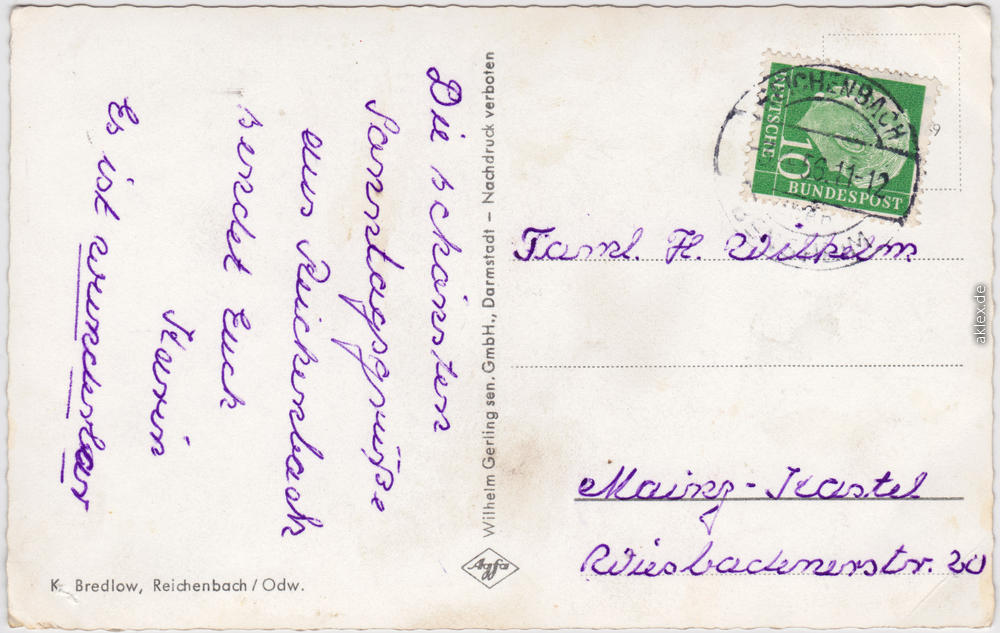 Die schönsten
Sonntagsgrüße
aus Reichenbach
sendet Euch
Karin
Es ist wunderbar
K. Bredlow, Reichenbach/Odw.
Wilhelm Gerling sen. GmbH., Darmstadt – Nachdruck verboten
Agfa
REICHENBACH
56.11-12
DEUTSCHE
10
BUNDESPOST
Faml. H. Wilhelm
Mainz-Kastel
Wiesbadenerstr. 20
aklex.de